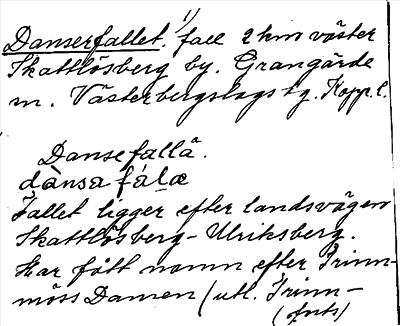 Danserfallet. 1) fall 2 km väster
Skattlösberg by. Grangärde
m. Västerbergslags tg. Kopp. l.
Dansefallä.
dànsa fálæ
Fallet ligger efter landsvägen
Skattlösberg-Ulriksberg.
Har fått namn efter Trinn-
möss Dansen (utt. Trinn-